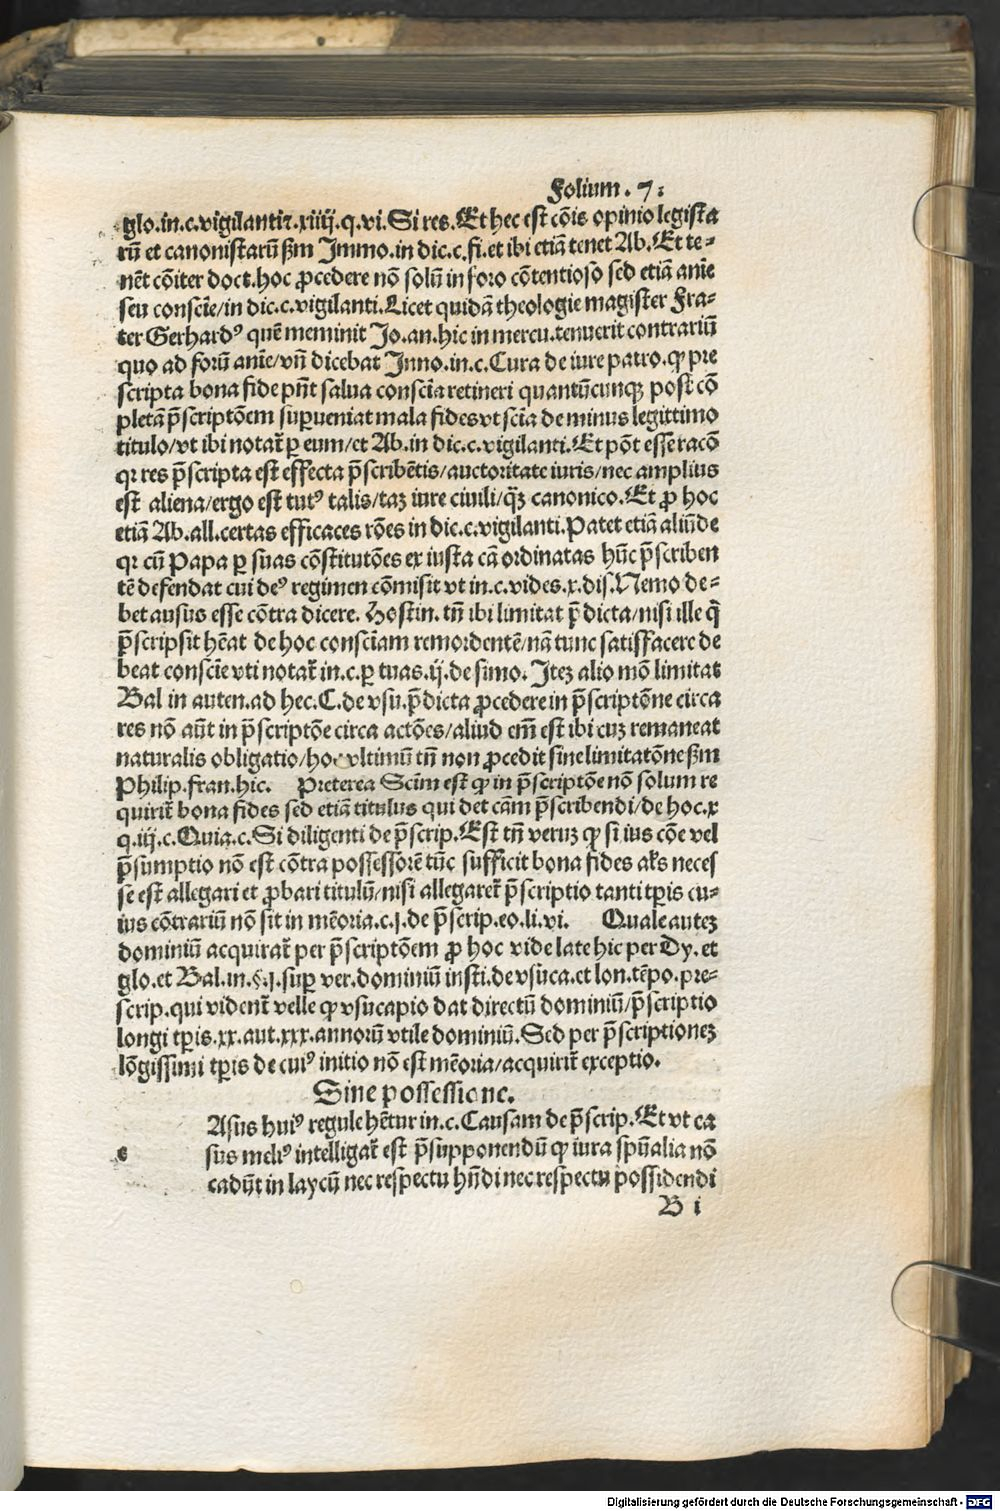 Folium . 7 :
glo.in.c.vigilantiꝛ.xiiij.q.vi.Si res.Et hec est cōis opinio legista
rū et canonistarū ẜm Immo.in dic.c.fi.et ibi etiā tenet Ab.Et te-
nēt cōiter doct.hoc ꝓcedere nō solū in foro cōtentioso sed etiā anīe
seu consciē/in dic.c.vigilanti.Licet quidā theologie magister Fra-
ter Gerhardꝰ quē meminit Jo.an.hic in mercu.tenuerit contrariū
quo ad forū anīe/vn̄ dicebat Inno.in.c.Cura de iure patro.ꝙ pre
scripta bona fide pn̄t salua consciā retineri quantūcunqꝫ post cō
pletā p̄scriptōem suꝑueniat mala fides vt sciā de minus legittimo
titulo/vt ibi notat̄ ꝑ eum/et Ab.in dic.c.vigilanti.Et pōt esse racō
qꝛ res p̄scripta est effecta p̄scribētis/auctoritate iuris/nec amplius
est aliena/ergo est tutꝰ talis/taꝫ iure ciuili/q̄ꝫ canonico.Et ꝓ hoc
etiā Ab.all.certas efficaces rōes in dic.c.vigilanti.Patet etiā aliūde
qꝛ cū Papa ꝑ suas cōstitutōes ex iusta cā ordinatas hūc p̄scriben
tē defendat cui deꝰ regimen cōmisit vt in.c.vides.x.dis.Nemo de-
bet ausus esse cōtra dicere. Hostin. tn̄ ibi limitat p̄dicta/nisi ille q̄
p̄scripsit hēat de hoc consciam remordentē/nā tunc satisfacere de
beat consciē vti notat̄ in.c.ꝑ tuas.ij.de simo. Iteꝫ alio mō limitat
Bal in auten.ad hec.C.de vsu.p̄dicta ꝓcedere in p̄scriptōne circa
res nō aūt in p̄scriptōe circa actōes/aliud em̄ est ibi cuꝫ remaneat
naturalis obligatio/hoc vltimū tn̄ non ꝓcedit sine limitatōne ẜm
Philip.fran.hic. Preterea Scīm est ꝙ in p̄scriptōe nō solum re
quirit̄ bona fides sed etiā titulus qui det cām p̄scribendi/de hoc.x
q.iij.c.Quia.c.Si diligenti de p̄scrip.Est tn̄ veruꝫ ꝙ si ius cōe vel
p̄sumptio nō est cōtra possessorē tūc sufficit bona fides al̄s neces
se est allegari et ꝓbari titulū/nisi allegaret̄ p̄scriptio tanti tꝑis cu-
ius cōtrariū nō sit in mēoria.c.j.de p̄scrip.eo.li.vi. Quale auteꝫ
dominiū acquirat̄ per p̄scriptōem ꝓ hoc vide late hic per Dy.et
glo.et Bal.in.§.j.suꝑ ver.dominiū insti.de vsuca.et lon.tēpo.pre-
scrip.qui vident̄ velle ꝙ vsucapio dat directū dominiū/p̄scriptio
longi tꝑis.xx.aut.xxx.annorū vtile dominiū.Sed per p̄scriptioneꝫ
lōgissimi tꝑis de cuiꝰ initio nō est mēoria/acquirit̄ exceptio.
Sine possessione.
Asus huiꝰ regule hētur in.c.Causam de p̄scrip.Et vt ca
c sus meliꝰ intelligat̄ est p̄supponendū ꝙ iura spūalia nō
cadūt in laycū nec respectu hn̄di nec respectu possidendi
B i
Digitalisierung gefördert durch die Deutsche Forschungsgemeinschaft - DFG